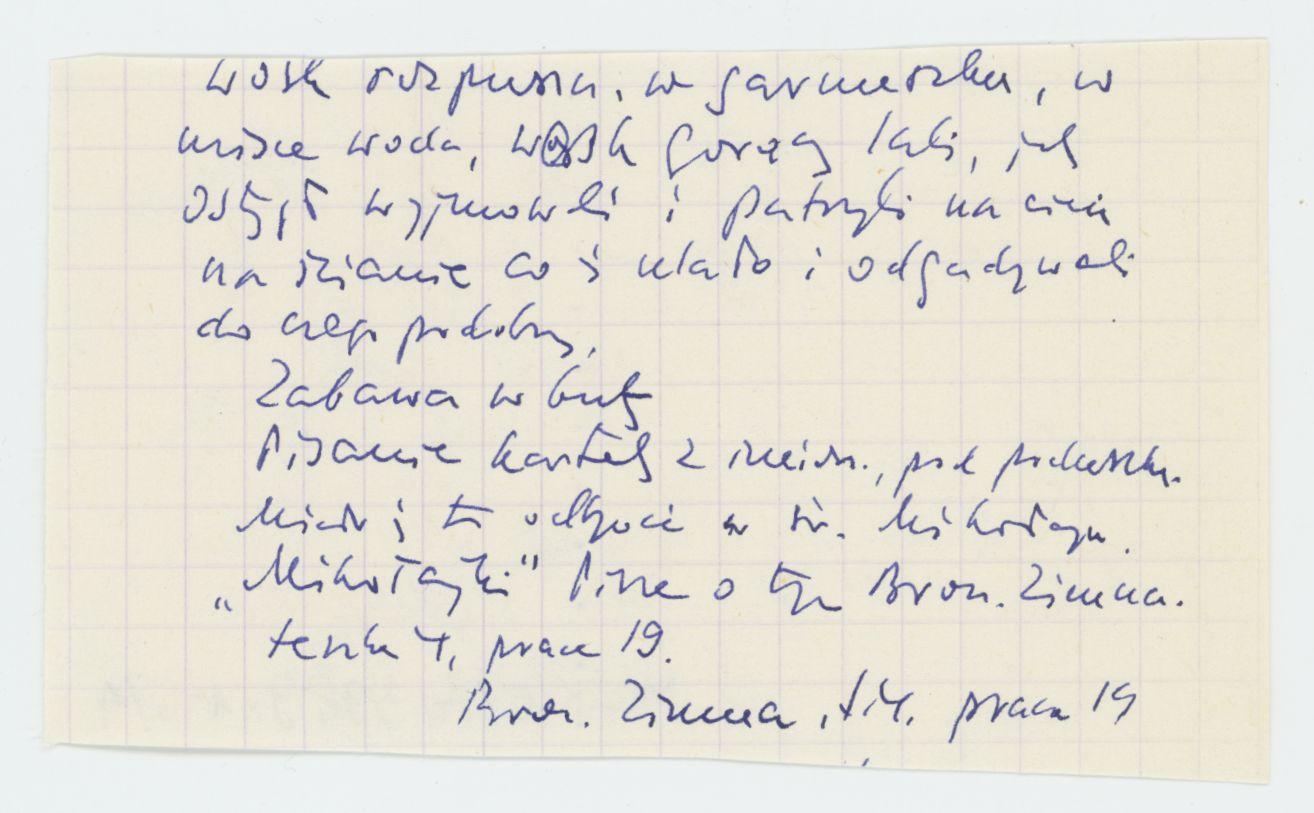 wosk rozpuszcz. w garnuszku, w
misce woda, wosk gorący lali, jak
ostygł wyjmowali i patrzyli na cień
na ścianie coś ulało i odgadywali
do czego podobny.
Zabawa w buty
Pisanie kartek z imion., pod poduszką.
w św. Mikołaja.
"Mikołajki" Pisze o tym Bron. Zimna.
teczka 4, praca 19.
Bron. Zimna, t. 4. praca 19